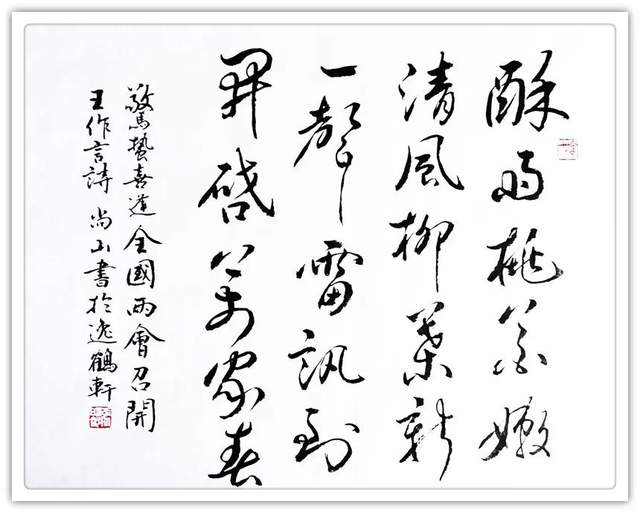 酥雨桃花嫩
清風柳葉新
一聲雷訊到
開啓萬家春
驚蟄喜逢全國兩會召開
王作言詩 尚山書於逸鶴軒